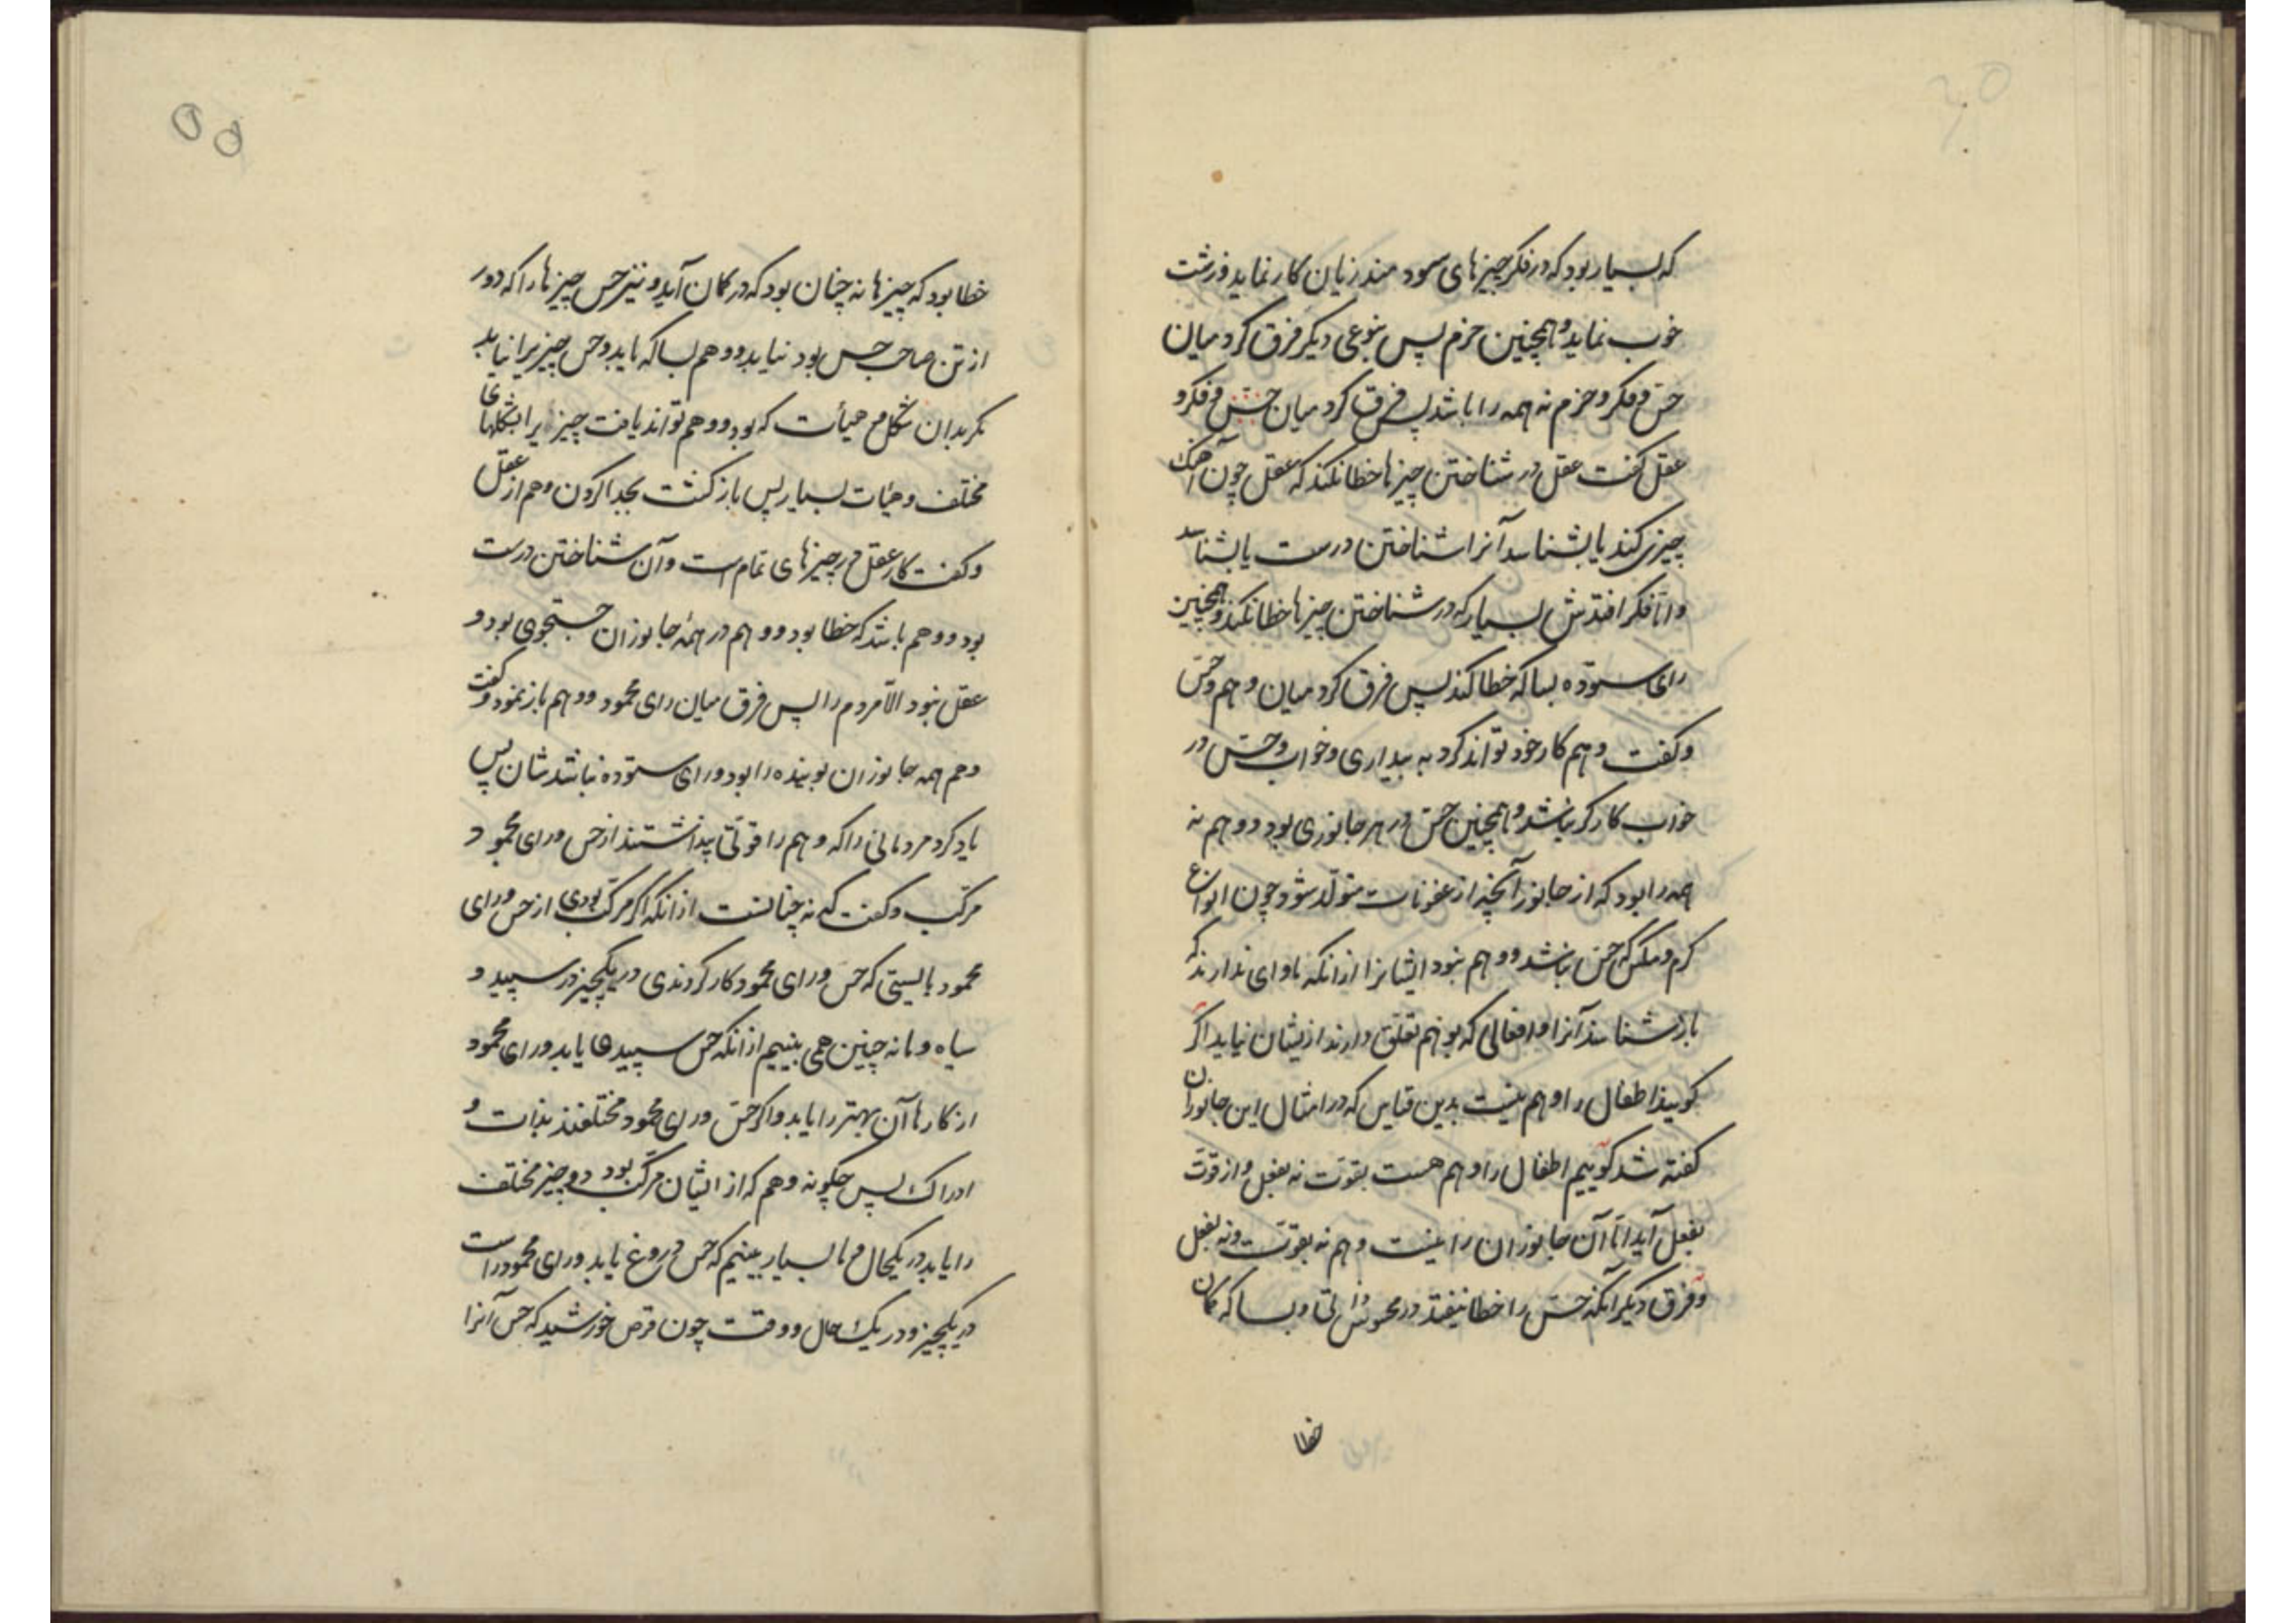 که بسیار بود که در فکر چیزهای سودمند زیان کار نماید و زشت
خوب نماید و همچنین حزم پس بنوعی دیگر فرق کرد میان
حس و فکر و حزم نه همه را باشد پس فرق کرد میان حس و فکر و
عقل گفت عقل در شناختن چیزها خطا نکند که عقل چون آهنگ
چیزی کند یا بشناسد آنرا شناختن درست یا بشناسد
و اما فکر افتدش بسیار که در شناختن چیزها خطا نکند و همچنین
رای ستوده بسا که خطا کند پس فرق کرد میان وهم و حس
و گفت وهم کار خود تواند کرد به بیداری و خواب و حس در
خواب کارگر نباشد و همچنین حس در هر جانوری بود و وهم نه
همه را بود که از جانور آنچه از عفونات متولد شود چون انواع
کرم و مگس که حس باشد و وهم نبود ایشانرا از آنکه ماوای ندارند که
باز شناسند آنرا و افعالی که بوهم تعلق دارند ازیشان نیاید اگر
گویند اطفال را وهم نیست بدین قیاس که در امثال این جانوران
گفته شد گوییم اطفال را وهم هست بقوت نه بفعل و از قوت
بفعل آید اما آن جانوران را نیست وهم نه بقوت و نه بفعل
و فرق دیگر آنکه حس را خطا نیفتد در محسوس ذاتی و بسا که گمان
خطا
خطا بود که چیزها نه چنان بود که در گمان آید و نیز حس چیزها را که دور
از تن صاحب حس بود نیابد و وهم بسا که یابد و حس چیزیرا نیابد
مگر بدان شکل و هیأت که بود و وهم تواند یافت چیزیرا بشکلهای
مختلف و هیات بسیار پس باز گشت بجدا کردن وهم از عقل
و گفت کار عقل در چیزهای تمام است و آن شناختن درست
بود و وهم باشد که خطا بود و وهم در همه جانوران جستجوی بود و
عقل نبود الا مردم را پس فرق میان رای محمود و وهم باز نمود و گفت
وهم همه جانوران پوینده را بود و رای ستوده نباشدشان پس
یاد کرد مردمانی را که وهم را قوتی پنداشتند از حس و رای محمود
مرکب و گفت که نه چنانست از آنکه اگر مرکب بودی از حس و رای
محمود بایستی که حس و رای محمود کار کردندی در یکچیز در سپید و
سیاه و ما نه چنین همی بینیم از آنکه حس سپیدها یابد و رای محمود
از کارها آن بهتر را یابد و اگر حس و رای محمود مختلفند بذات و
ادراک پس چگونه وهم که از ایشان مرکب بود دو چیز مختلف
را یابد در یکحال و ما بسیار بینیم که حس دروغ یابد و رای محمود راست
در یکچیز و در یک حال و وقت چون قرص خورشید که حس آنرا